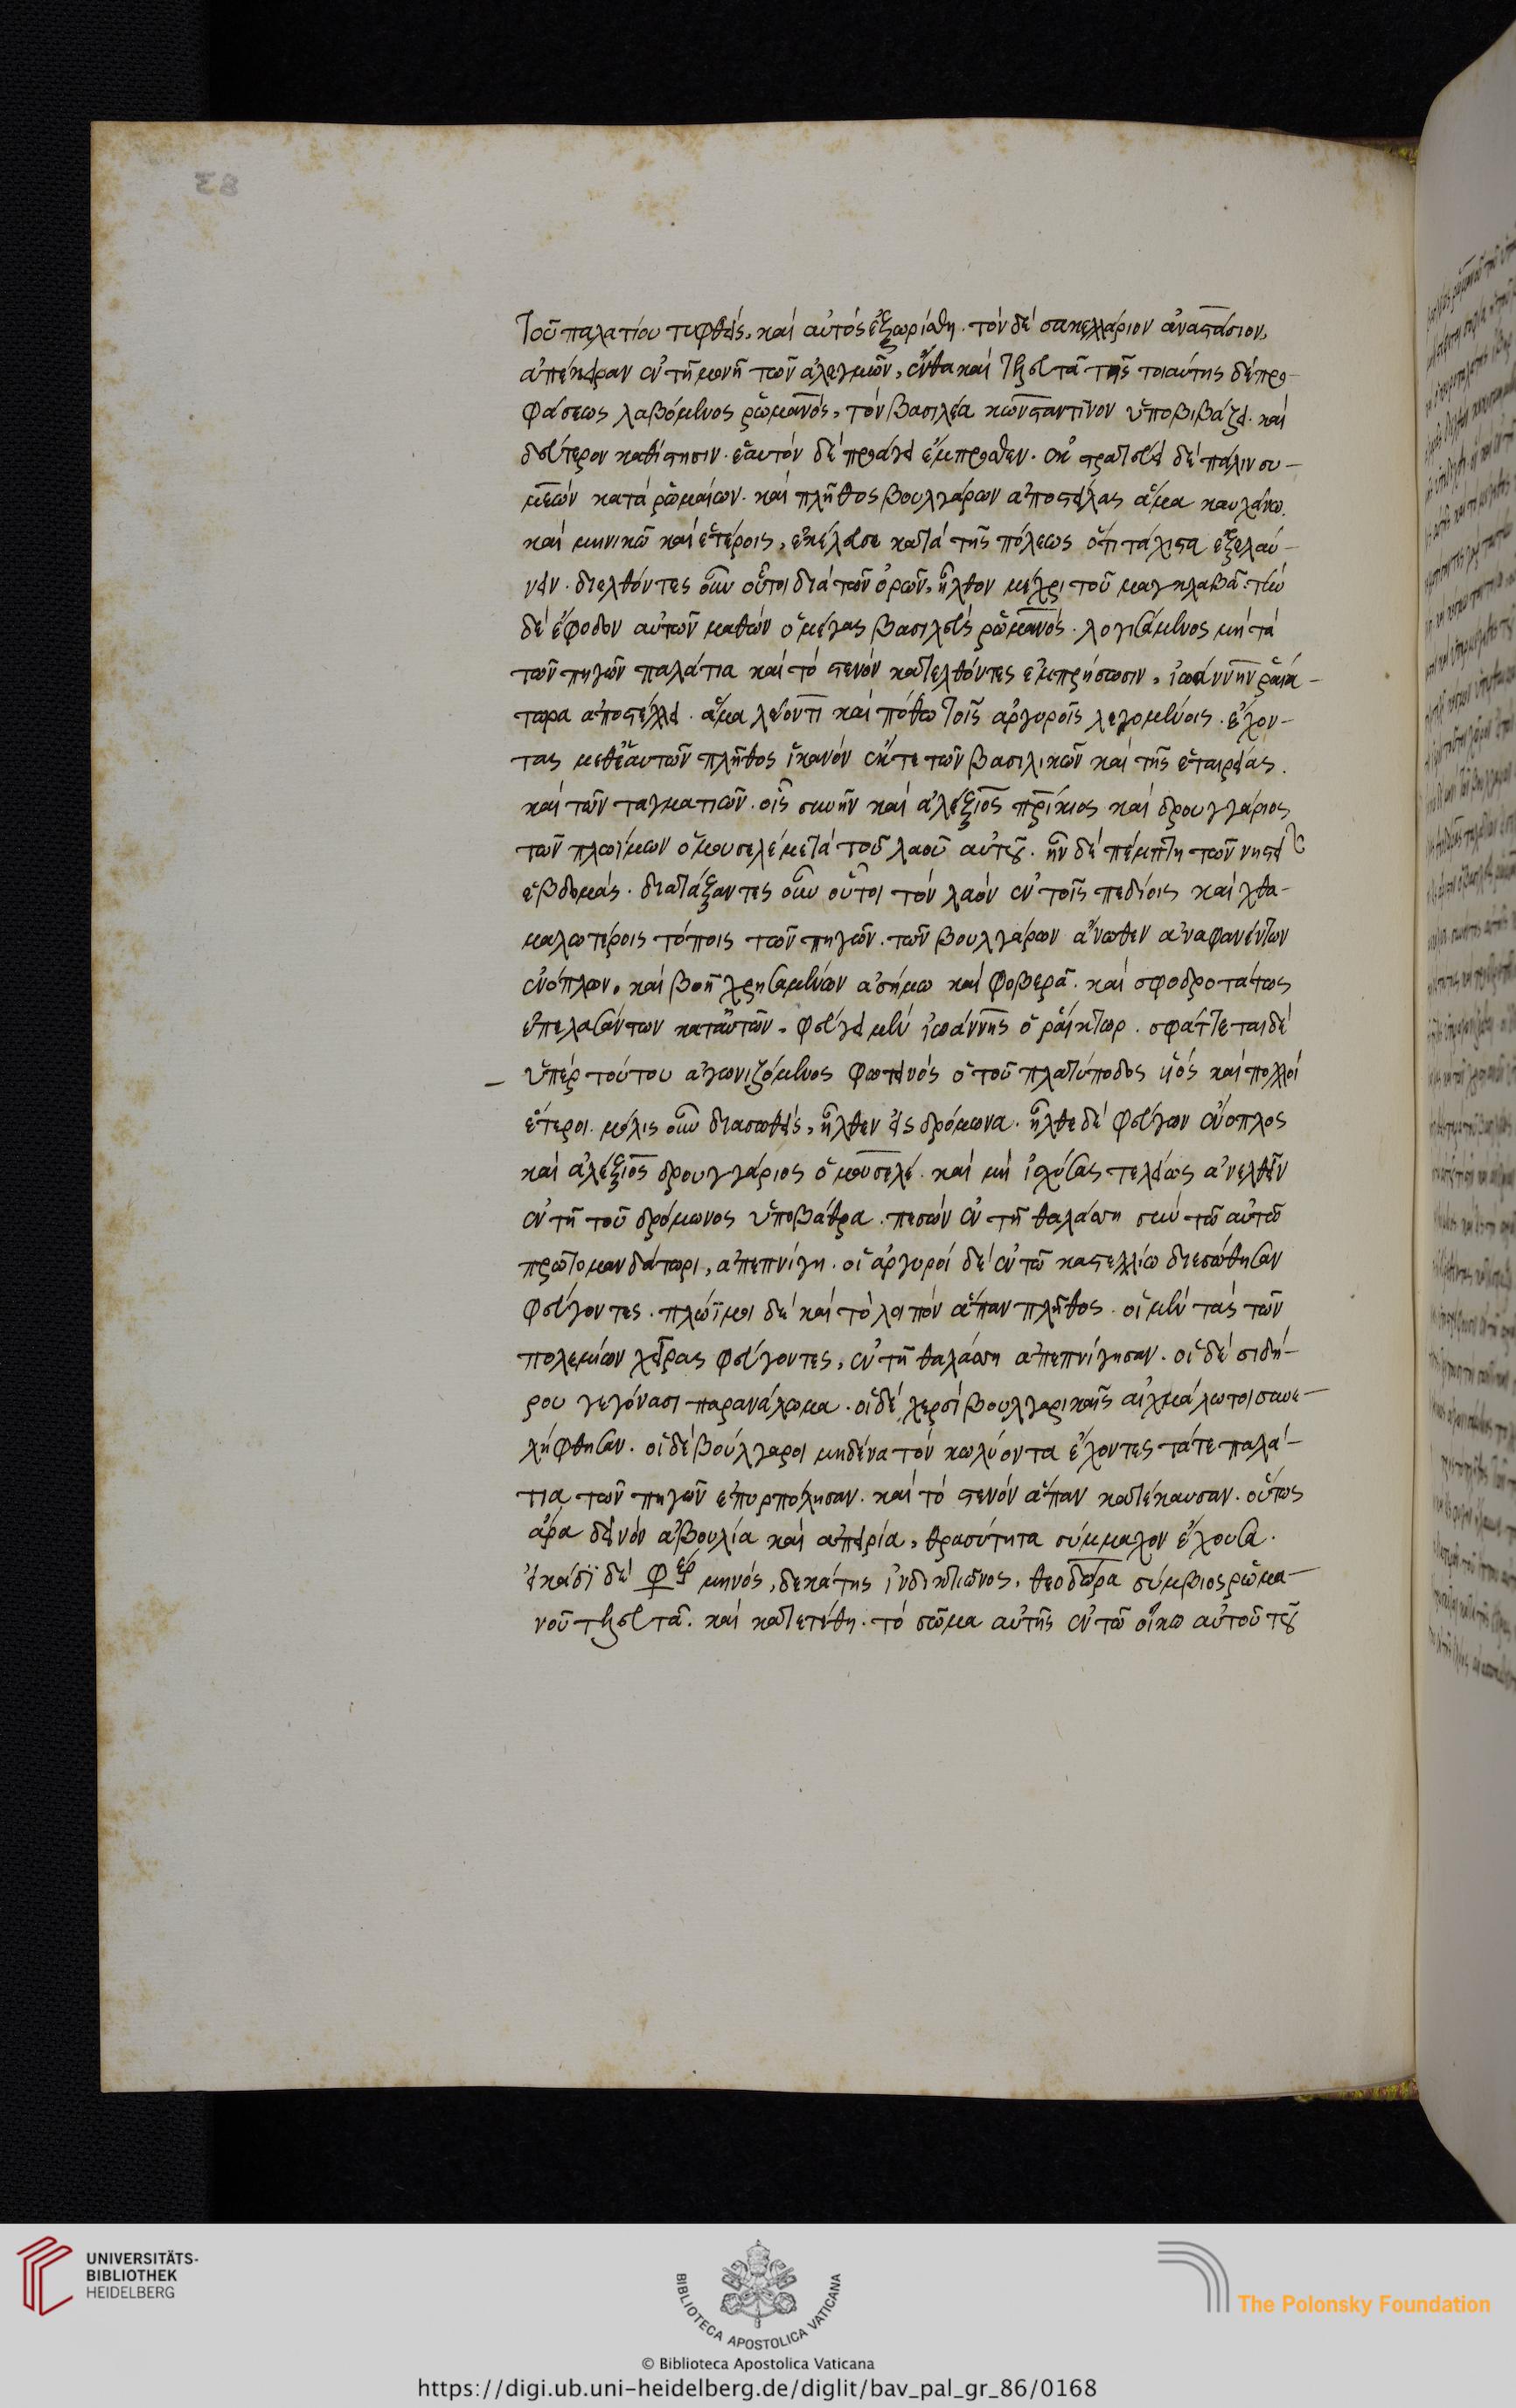 83
τοῦ παλατίου τυφθεὶς, καὶ αὐτὸς ἐξωρίσθη. τὸν δὲ σακελλάριον ἀναστάσιον,
ἀπέκειραν ἐν τῇ μονῇ τῶν ἐλεγμῶν, ἔνθα καὶ τελευτᾶ τῆς τοιαύτης δὲ προ-
φάσεως λαβόμενος ῥωμανὸς, τὸν βασιλέα κωνσταντῖνον ὑποβιβάζει. καὶ
δεύτερον καθίστησιν. ἑαυτὸν δὲ προάγει ἔμπροσθεν. ἐκστρατεύει δὲ πάλιν συ-
μεὼν κατὰ ῥωμαίων. καὶ πλῆθος βουλγάρων ἀποστείλας ἅμα καυκάνω.
καὶ μηνικῶ καὶ ἑτέροις, ἐκέλευσε κατὰ τῆς πόλεως ὅτι τάχιστα ἐξελαύ-
νειν. διελθόντες οὖν οὗτοι διὰ τῶν ὀρῶν, ἦλθον μέχρι τοῦ μαγκλαβᾶ. τὴν
δὲ ἔφοδον αὐτῶν μαθὼν ὁ μέγας βασιλεὺς ῥωμανὸς. λογισάμενος μὴ τὰ
τῶν πηγῶν παλάτια καὶ τὸ στενὸν κατελθόντες ἐμπρήσωσιν, ἰωάννην ῥαί-
τωρα ἀποστέλλει. ἅμα λέοντι καὶ πόθω τοῖς ἀργυροῖς λεγομένοις. ἔχον-
τας μεθ' ἑαυτῶν πλῆθος ἱκανὸν ἔκ τε τῶν βασιλικῶν καὶ τῆς ἑταιρείας.
καὶ τῶν ταγματικῶν. οἷς συνῆν καὶ ἀλέξιος πρίκιος καὶ δρουγγάριος
τῶν πλωΐμων ὁ μουσελὲ μετὰ τοῦ λαοῦ αὐτοῦ. ἦν δὲ πέμπτη τῶν νηστειῶν
ἑβδομάς. διατάξαντες οὖν οὗτοι τὸν λαὸν ἐν τοῖς πεδίοις καὶ χθα-
μαλωτέροις τόποις τῶν πηγῶν. τῶν βουλγάρων ἄνωθεν ἀναφανέντων
ἐνόπλων, καὶ βοῇ χρησαμένων ἀσήμω καὶ φοβερᾶ. καὶ σφοδροτάτως
ἐπελασάντων κατ' αὐτῶν, φεύγει μὲν ἰωάννης ὁ ῥαίκτωρ. σφάττεται δὲ
ὑπὲρ τούτου ἀγωνιζόμενος φωτεινὸς ὁ τοῦ πλατύποδος υἱὸς καὶ πολλοὶ
ἕτεροι. μόλις οὖν διασωθεὶς, ἦλθεν εἰς δρόμωνα. ἦλθε δὲ φεύγων ἔνοπλος
καὶ ἀλέξιος δρουγγάριος ὁ μουσελέ. καὶ μὴ ἰσχύσας τελείως ἀνελθεῖν
ἐν τῇ τοῦ δρόμωνος ὑποβάθρα. πεσὼν ἐν τῇ θαλάσση σὺν τῶ αὐτῶ
πρωτομανδάτορι, ἀπεπνίγη. οἱ ἀργυροὶ δὲ ἐν τῶ καστελλίω διεσώθησαν
φεύγοντες. πλώϊμοι δὲ καὶ τὸ λοιπὸν ἅπαν πλῆθος. οἱ μὲν τὰς τῶν
πολεμίων χεῖρας φεύγοντες, ἐν τῇ θαλάσση ἀπεπνίγησαν. οἱ δὲ σιδή-
ρου γεγόνασι παρανάλωμα. οἱ δὲ χερσὶ βουλγαρικαῖς αἰχμάλωτοι συνε-
λήφθησαν. οἱ δὲ βούλγαροι μηδένα τὸν κωλύοντα ἔχοντες τά τε παλά-
τια τῶν πηγῶν ἐπυρπόλησαν. καὶ τὸ στενὸν ἅπαν κατέκαυσαν. οὕτως
ἄρα δεινὸν ἀβουλία καὶ ἀπειρία, θρασύτητα σύμμαχον ἔχουσα.
εἰκάδι δὲ φερ μηνὸς, δεκάτης ἰνδικτιῶνος, θεοδώρα σύμβιος ῥωμα-
νοῦ τελευτᾶ. καὶ κατετέθη. τὸ σῶμα αὐτῆς ἐν τῶ οἴκω αὐτοῦ τοῦ
UNIVERSITÄTS-
BIBLIOTHEK
HEIDELBERG
BIBLIOTECA APOSTOLICA VATICANA
The Polonsky Foundation
© Biblioteca Apostolica Vaticana
https://digi.ub.uni-heidelberg.de/diglit/bav_pal_gr_86/0168